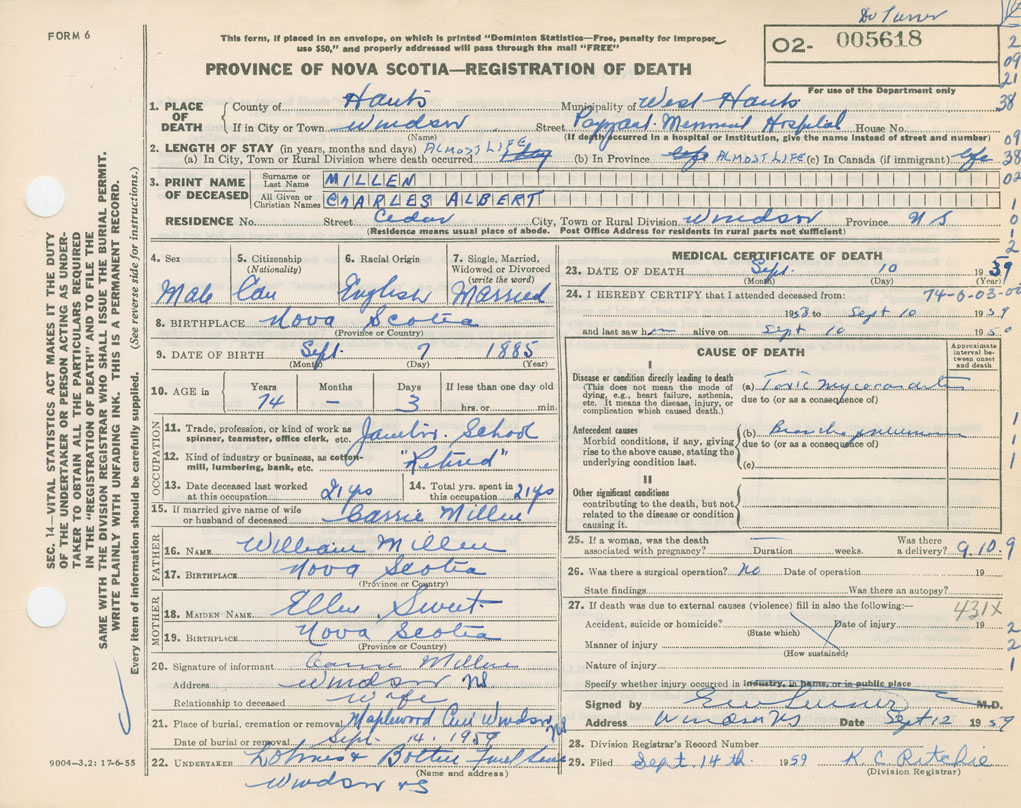 Dr Turner
FORM 6
This form, if placed in an envelope, on which is printed "Dominion Statistics—Free, penalty for improper
use $50," and properly addressed will pass through the mail "FREE"
O2- 005618
PROVINCE OF NOVA SCOTIA—REGISTRATION OF DEATH
For use of the Department only
2
09
21
38
09
38
02
1
0
1
2
1. PLACE OF DEATH County of Hants Municipality of West Hants
If in City or Town Windsor Street Payzant Memorial Hospital House No.
(Name) (If death occurred in a hospital or institution, give the name instead of street and number)
2. LENGTH OF STAY (in years, months and days) ALMOST LIFE
(a) In City, Town or Rural Division where death occurred (b) In Province life ALMOST LIFE (c) In Canada (if immigrant) life
3. PRINT NAME OF DECEASED Surname or Last Name MILLEN
All Given or Christian Names CHARLES ALBERT
RESIDENCE No. Street Cedar City, Town or Rural Division Windsor Province N S
(Residence means usual place of abode. Post Office Address for residents in rural parts not sufficient)
SEC. 14—VITAL STATISTICS ACT MAKES IT THE DUTY
OF THE UNDERTAKER OR PERSON ACTING AS UNDER-
TAKER TO OBTAIN ALL THE PARTICULARS REQUIRED
IN THE "REGISTRATION OF DEATH" AND TO FILE THE
SAME WITH THE DIVISION REGISTRAR WHO SHALL ISSUE THE BURIAL PERMIT.
WRITE PLAINLY WITH UNFADING INK. THIS IS A PERMANENT RECORD.
Every item of information should be carefully supplied. (See reverse side for instructions.)
4. Sex 5. Citizenship (Nationality) 6. Racial Origin 7. Single, Married, Widowed or Divorced (write the word)
Male Can English Married
8. BIRTHPLACE Nova Scotia
(Province or Country)
9. DATE OF BIRTH Sept. 7 1885
(Month) (Day) (Year)
10. AGE in Years Months Days If less than one day old
74 — 3 hrs. or min.
OCCUPATION
11. Trade, profession, or kind of work as
spinner, teamster, office clerk, etc. Janitor. School
12. Kind of industry or business, as cotton-
mill, lumbering, bank, etc. "Retired"
13. Date deceased last worked at this occupation 21 yrs 14. Total yrs. spent in this occupation 21 yrs
15. If married give name of wife
or husband of deceased Carrie Millen
FATHER
16. NAME William Millen
17. BIRTHPLACE Nova Scotia
(Province or Country)
MOTHER
18. MAIDEN NAME Ellen Sweet
19. BIRTHPLACE Nova Scotia
(Province or Country)
20. Signature of informant Carrie Millen
Address Windsor NS
Relationship to deceased Wife
21. Place of burial, cremation or removal Maplewood Cem Windsor NS
Date of burial or removal Sept. 14. 1959
22. UNDERTAKER Lohnes &
(Name and address)
Windsor NS
9004—3.2: 17-6-55
MEDICAL CERTIFICATE OF DEATH
23. DATE OF DEATH Sept. 10 1959
(Month) (Day) (Year)
24. I HEREBY CERTIFY that I attended deceased from: 74-0-03-0
1958 to Sept 10 1959
and last saw him alive on Sept 10 1950
CAUSE OF DEATH
Approximate interval between onset and death
I
Disease or condition directly leading to death
(This does not mean the mode of
dying, e.g., heart failure, asthenia,
etc. It means the disease, injury, or
complication which caused death.)
(a) Toxic myocarditis
due to (or as a consequence of)
Antecedent causes
Morbid conditions, if any, giving
rise to the above cause, stating the
underlying condition last.
(b) Broncho pneumonia
due to (or as a consequence of)
(c)
1
1
1
II
Other significant conditions
contributing to the death, but not
related to the disease or condition
causing it.
25. If a woman, was the death
associated with pregnancy? — Duration weeks. Was there a delivery? 9.10.9
26. Was there a surgical operation? No Date of operation 19
State findings Was there an autopsy?
27. If death was due to external causes (violence) fill in also the following:— 431X
Accident, suicide or homicide? Date of injury 19 2
(State which)
Manner of injury 2
(How sustained)
Nature of injury 1
Specify whether injury occurred in industry, in home, or in public place
Signed by M.D.
Address Windsor NS Date Sept 12 1959
28. Division Registrar's Record Number
29. Filed Sept. 14th 1959 K. C. Ritchie
(Division Registrar)